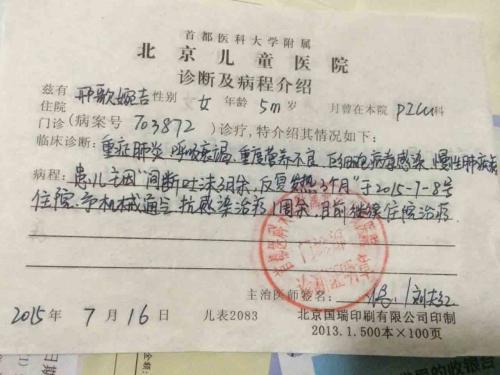 首都医科大学附属
北京儿童医院
诊断及病程介绍
兹有 邢歌婉吉 性别 女 年龄 5m 岁 月曾在本院 PICU 科
住院
门诊(病案号 703872)诊疗,特介绍其情况如下:
临床诊断:重症肺炎 呼吸衰竭 重度营养不良 巨细胞病毒感染 慢性肺疾病
病程:患儿主因"间断吐沫3月余,反复发热3个月"于2015-7-8号
住院.予机械通气.抗感染治疗1周余,目前继续住院治疗.
主治医师签名:
2015年 7月 16日 儿表2083 北京国瑞印刷有限公司印制
2013.1.500本×100页